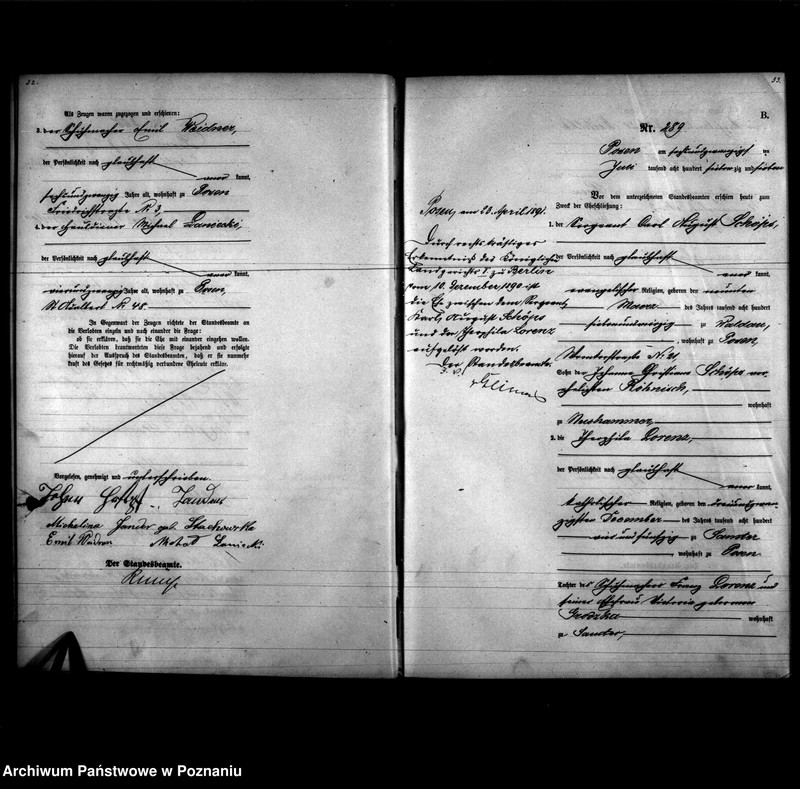 32.
Als Zeugen waren zugezogen und erschienen:
3. der Schuhmacher Emil Weidner,
der Persönlichkeit nach glaubhaft
aner kannt,
sechsundzwanzig Jahre alt, wohnhaft zu Posen
Friedrichstraße Nr 3,
4. der Michael
der Persönlichkeit nach glaubhaft
aner kannt,
vierundzwanzig Jahre alt, wohnhaft zu Posen,
St Adalbert Nr 48.
In Gegenwart der Zeugen richtete der Standesbeamte an
die Verlobten einzeln und nach einander die Frage:
ob sie erklären, daß sie die Ehe mit einander eingehen wollen.
Die Verlobten beantworteten diese Frage bejahend und erfolgte
hierauf der Ausspruch des Standesbeamten, daß er sie nunmehr
kraft des Gesetzes für rechtmäßig verbundene Eheleute erkläre.
Vorgelesen, genehmigt und unterschrieben.
Johann
Michalina geb.
Emil
Der Standesbeamte.
33.
B.
Nr. 289
Posen am sechsundzwanzigsten
Juni tausend acht hundert siebenzig und sieben
Vor dem unterzeichneten Standesbeamten erschienen heute zum
Zweck der Eheschließung:
1. der Sergeant Carl August Schöps,
der Persönlichkeit nach glaubhaft
aner kannt,
evangelischer Religion, geboren den neunten
Maerz des Jahres tausend acht hundert
zu
, wohnhaft zu Posen,
Nr. 21,
Sohn der Johanne Christiane Schöps ver
ehelichten
wohnhaft
zu Neuhammer,
2. die Theophila Lorenz,
der Persönlichkeit nach glaubhaft
aner kannt,
katholischer Religion, geboren den dreiundzwan
zigsten December des Jahres tausend acht hundert
vier und fünfzig zu Samter
wohnhaft zu Posen
Tochter des Schuhmachers Franz Lorenz und
seiner Ehefrau Victoria geborenen
wohnhaft
zu Samter,
Posen, am 23. April 1891.
Durch rechtskräftiges
Erkenntniß des Königlichen
Landgerichts I. zu Berlin
vom 10. Dezember 1890 ist
die Ehe zwischen dem Sergeant
Karl August Schöps
und der Theophila Lorenz
aufgelöst worden.
Der Standesbeamte.
Archiwum Państwowe w Poznaniu